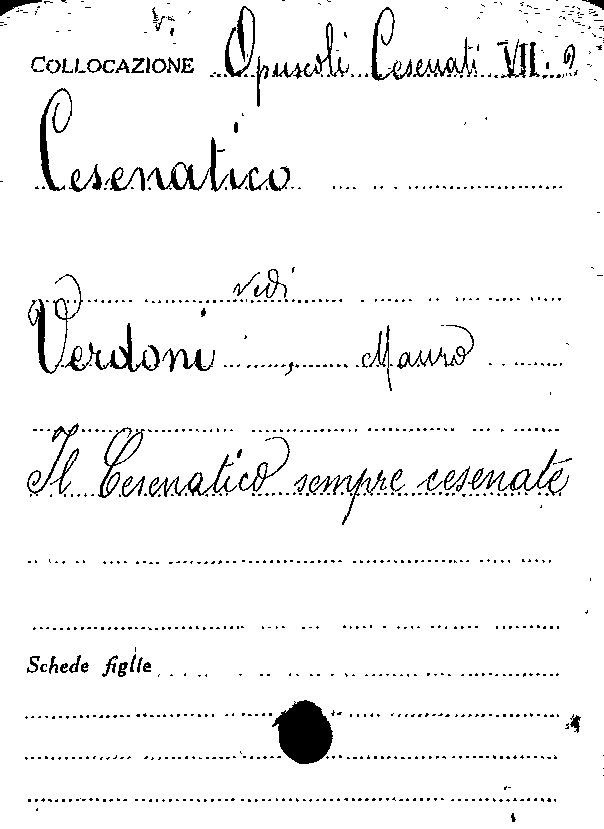 V.
COLLOCAZIONE Opuscoli Cesenati VII. 2
Cesenatico
vedi
Verdoni, Mauro
Il Cesenatico sempre cesenate
Schede figlie